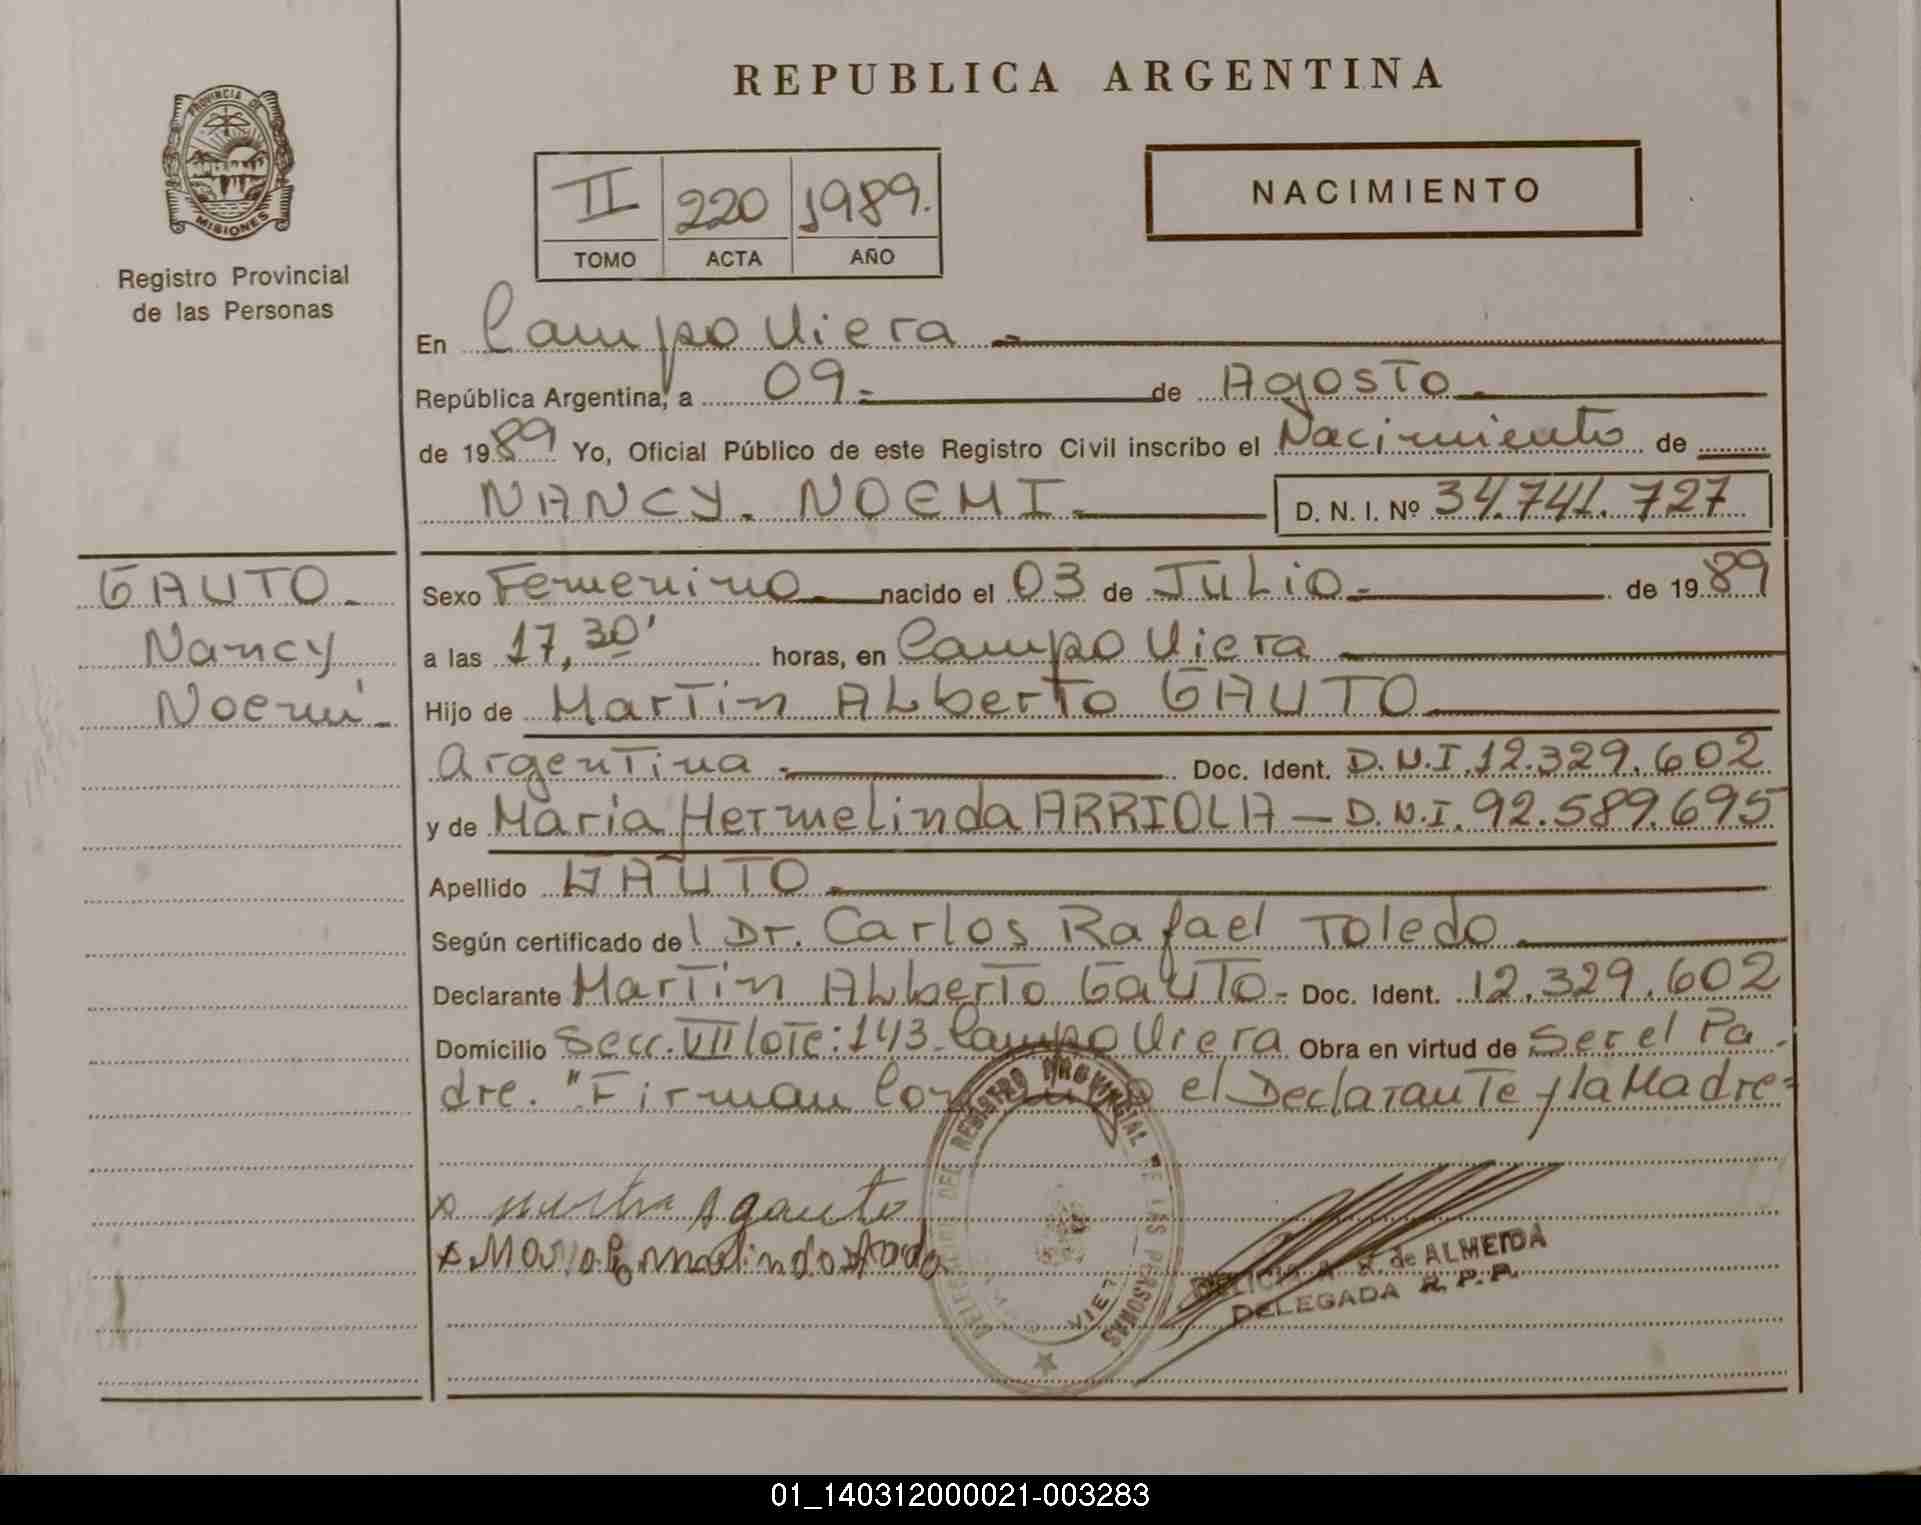 REPUBLICA ARGENTINA
PROVINCIA DE
MISIONES
Registro Provincial
de las Personas
II 220 1989.
TOMO ACTA AÑO
NACIMIENTO
En Campo Viera
República Argentina, a 09 de Agosto
de 1989 Yo, Oficial Público de este Registro Civil inscribo el Nacimiento de
NANCY. NOEMI D. N. I. Nº 34.741.727
GAUTO.
Nancy
Noemí
Sexo Femenino nacido el 03 de Julio de 1989
a las 17,30' horas, en Campo Viera
Hijo de Martin Alberto GAUTO
Argentina Doc. Ident. D.N.I. 12.329.602
y de Maria Hermelinda ARRIOLA — D.N.I. 92.589.695
Apellido GAUTO
Según certificado del Dr. Carlos Rafael Toledo
Declarante Martin Alberto Gauto Doc. Ident. 12.329.602
Domicilio Secc. VII lote: 143. Campo Viera Obra en virtud de Ser el Pa-
dre. "Firman el Declarante y la Madre=
REGISTRO PROVINCIAL DE LAS PERSONAS
de ALMEIDA
DELEGADA R. P. P.
01_140312000021-003283